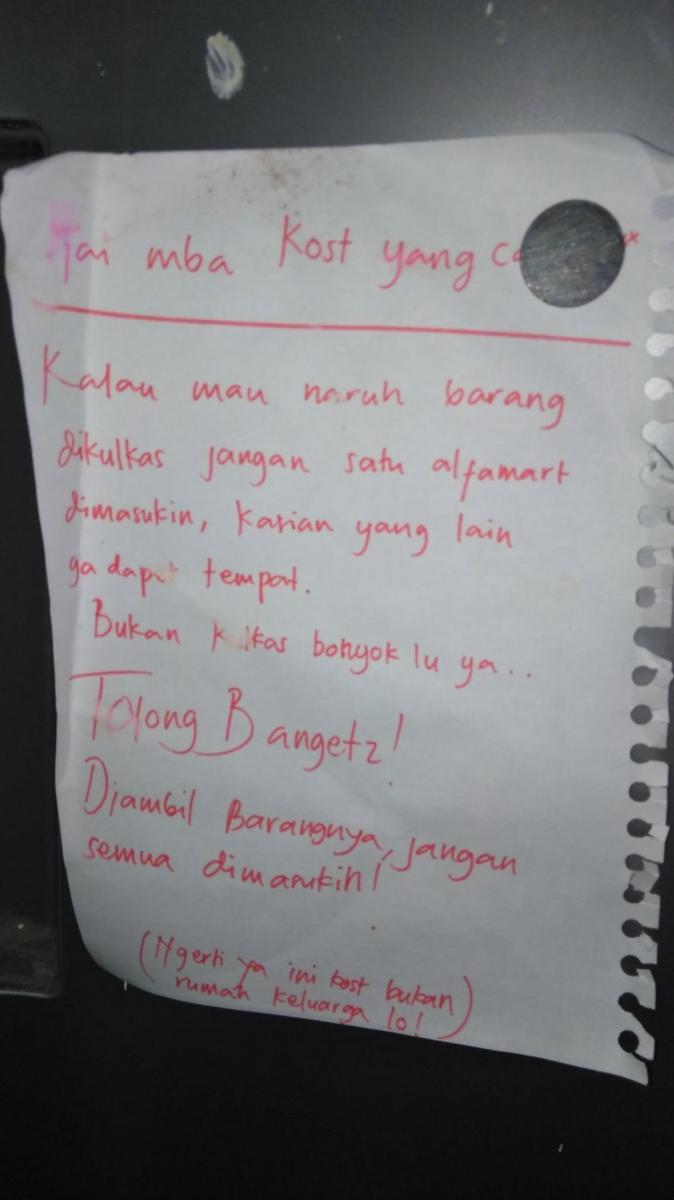 Hai mba Kost yang
Kalau mau naruh barang
dikulkas jangan satu alfamart
dimasukin, Kasian yang lain
ga dapet tempat.
Bukan kulkas bonyok lu ya..
Tolong Bangetz!
Diambil Barangnya, jangan
semua dimasukin!
(Ngerti ya ini kost bukan
rumah keluarga lo!)